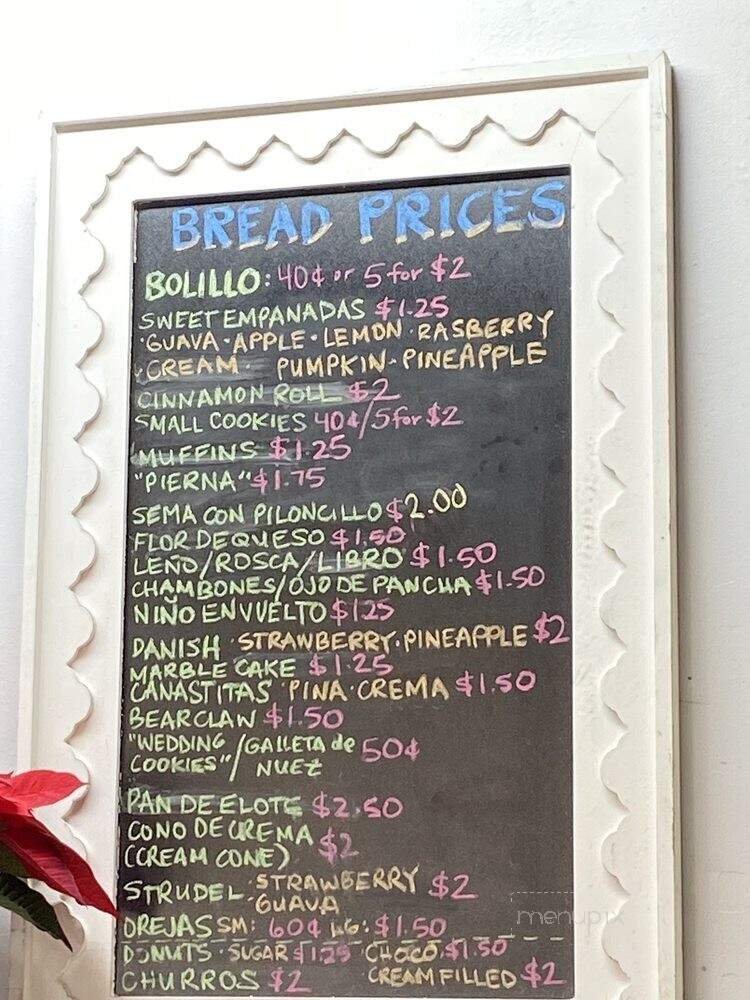 BREAD PRICES
BOLILLO: 40¢ or 5 for $2
SWEET EMPANADAS $1.25
·GUAVA·APPLE·LEMON·RASBERRY
·CREAM· PUMPKIN·PINEAPPLE
CINNAMON ROLL $2
SMALL COOKIES 40¢/5 for $2
MUFFINS $1.25
"PIERNA" $1.75
SEMA CON PILONCILLO $2.00
FLOR DE QUESO $1.50
LEÑO/ROSCA/LIBRO $1.50
CHAMBONES/OJO DE PANCHA $1.50
NIÑO ENVUELTO $1.25
DANISH ·STRAWBERRY·PINEAPPLE $2
MARBLE CAKE $1.25
CANASTITAS ·PINA·CREMA $1.50
BEARCLAW $1.50
"WEDDING COOKIES"/GALLETA de NUEZ 50¢
PAN DE ELOTE $2.50
CONO DE CREMA
(CREAM CONE) $2
STRUDEL ·STRAWBERRY $2
·GUAVA
OREJAS SM: 60¢ LG: $1.50
DONUTS ·SUGAR $1.25 ·CHOCO $1.50
CHURROS $2 CREAM FILLED $2
menupix